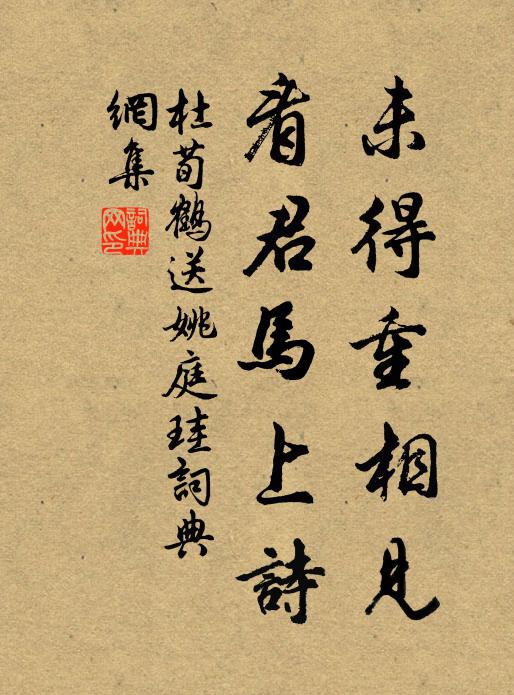 未得重相見
看君馬上詩
杜荀鶴送姚庭珪詞典
網集
詞典
网印